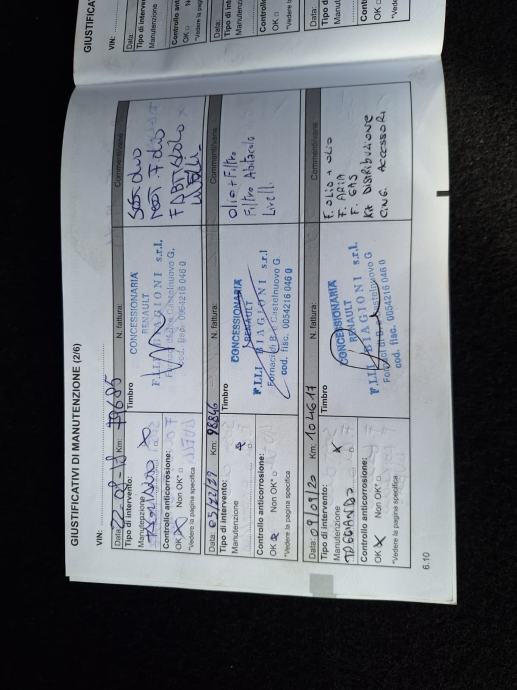 GIUSTIFICATIVI DI MANUTENZIONE (2/6)
VIN:
Data: 22-08-18 Km: 79685 N. fattura: Commenti/varie
Tipo di intervento: Timbro
Manutenzione X
CONCESSIONARIA
RENAULT
F.LLI BIAGIONI s.r.l.
Fornaci di B. - Castelnuovo G.
cod. fisc. 0054216 046 0
Controllo anticorrosione:
OK X Non OK* □
*Vedere la pagina specifica
Data: 05/12/19 Km: 98846 N. fattura: Commenti/varie
Tipo di intervento: Timbro
Manutenzione
CONCESSIONARIA
RENAULT
F.LLI BIAGIONI s.r.l.
Fornaci di B. - Castelnuovo G.
cod. fisc. 0054216 046 0
Olio + Filtro
Filtro Abitacolo
Livelli
Controllo anticorrosione:
OK Non OK* □
*Vedere la pagina specifica
Data: 09/09/20 Km: 104617 N. fattura: Commenti/varie
Tipo di intervento: Timbro
Manutenzione X
TAGLIANDO
CONCESSIONARIA
RENAULT
F.LLI BIAGIONI s.r.l.
Fornaci di B. - Castelnuovo G.
cod. fisc. 0054216 046 0
F. OLIO + OLIO
F. ARIA
F. GAS
Kit DISTRIBUZIONE
CING. ACCESSORI
Controllo anticorrosione:
OK X Non OK* □
*Vedere la pagina specifica
6.10
GIUSTIFICAT
VIN:
Data:
Tipo di intervento:
Manutenzione
Controllo ant
OK □ N
*Vedere la pagina
Data:
Tipo di interven
Manutenzione
Controllo anti
OK □
*Vedere la pag
Data:
Tipo di inter
Manutenzion
Controllo a
OK □
*Vedere la